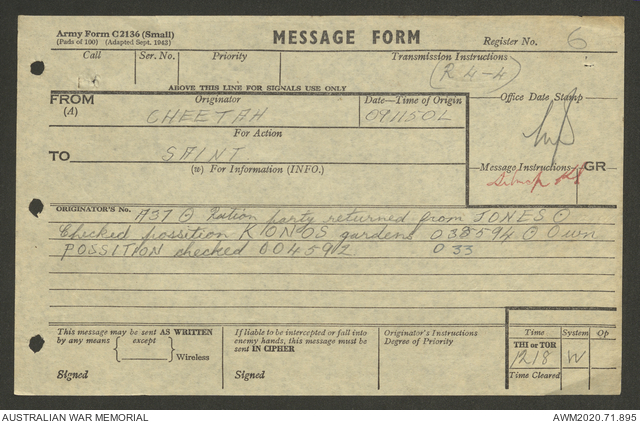 Army Form C2136 (Small)
(Pads of 100) (Adapted Sept. 1943)
MESSAGE FORM
Register No. 6
Call Ser. No. Priority Transmission Instructions
R 4-4
ABOVE THIS LINE FOR SIGNALS USE ONLY
FROM Originator Date—Time of Origin Office Date Stamp
(A) CHEETAH 091150L
For Action
TO SAINT
(w) For Information (INFO.) Message Instructions GR
ORIGINATOR'S No. A37 ⊙ Ration party returned from JONES ⊙
Checked possition KONOS gardens 038594 ⊙ Own
POSSITION checked 004592 033
This message may be sent AS WRITTEN
by any means { except } Wireless
Signed
If liable to be intercepted or fall into
enemy hands, this message must be
sent IN CIPHER
Signed
Originator's Instructions
Degree of Priority
Time System Op
THI or TOR
1218 W
Time Cleared
AUSTRALIAN WAR MEMORIAL AWM2020.71.895